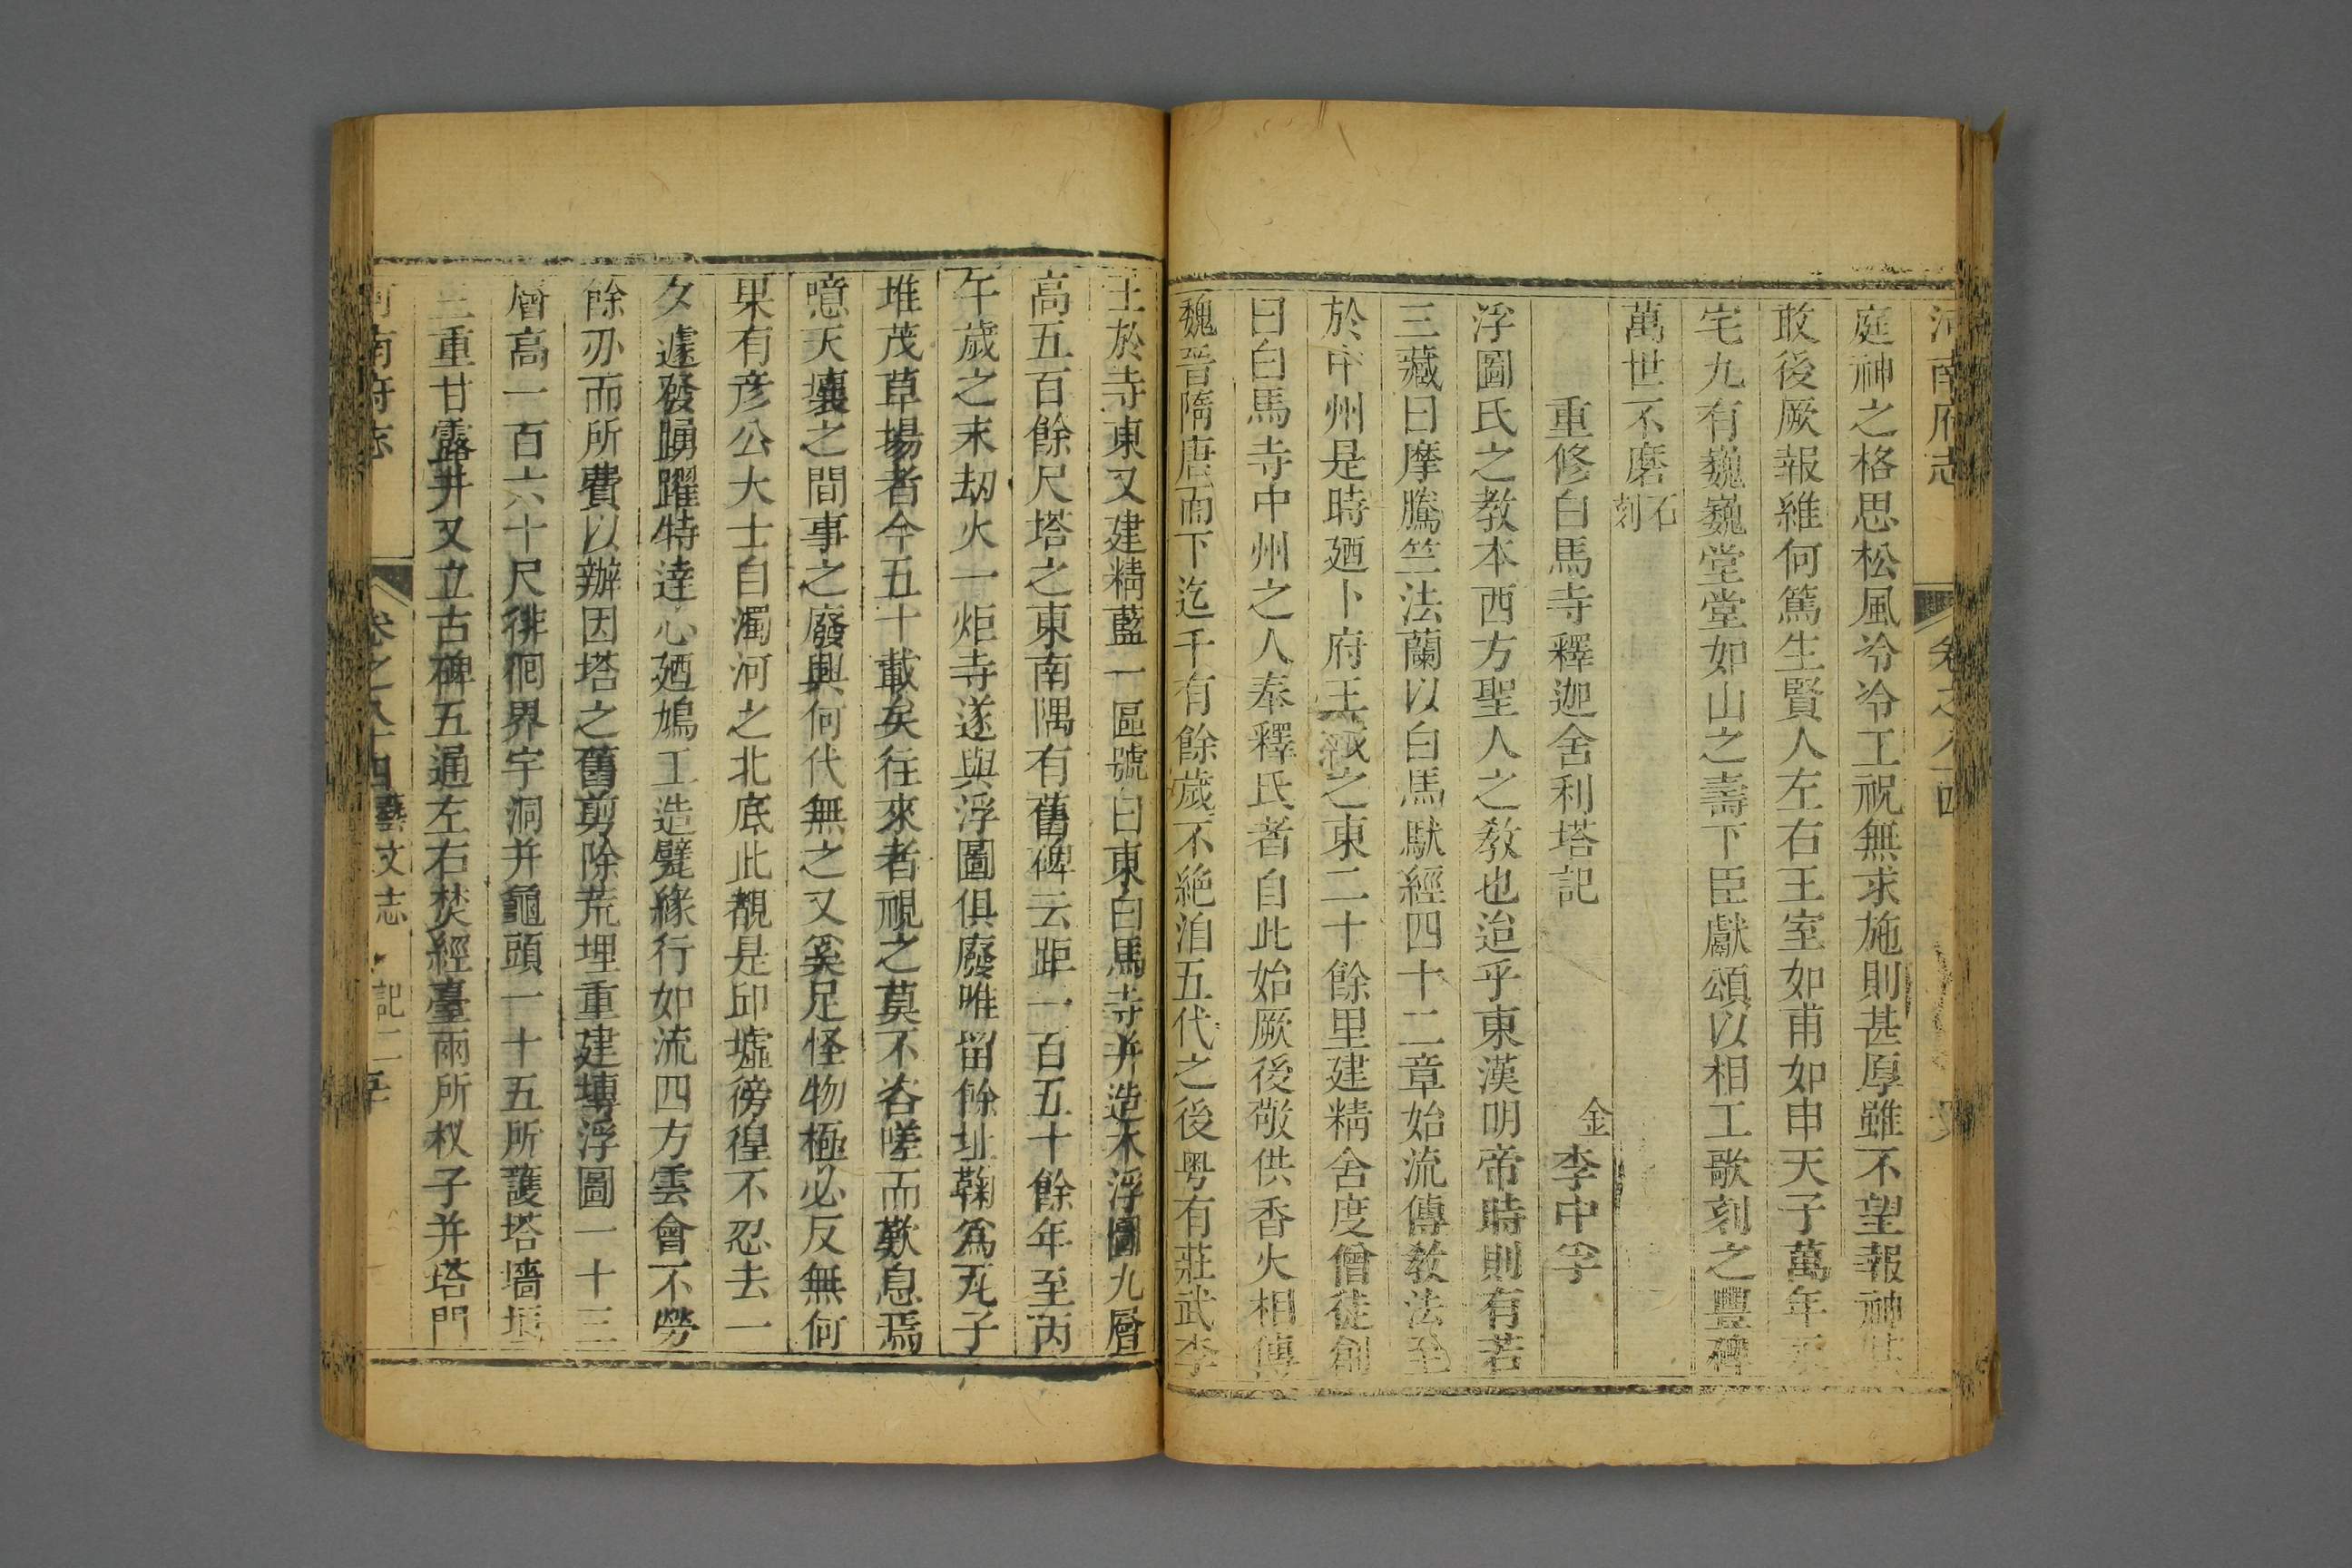 河南府志 卷之八十四
庭神之格思松風冷冷工祝無求施則甚厚雖不望報神其
敢後厥報維何篤生賢人左右王室如甫如申天子萬年
宅九有巍巍堂堂如山之壽下臣獻頌以相工歌刻之豐碑
萬世不磨石刻
重修白馬寺釋迦舍利塔記 金李中孚
浮圖氏之教本西方聖人之敎也迨乎東漢明帝時則有若
三藏曰摩騰竺法蘭以白馬馱經四十二章始流傳教法至
於中州是時廼卜府王城之東二十餘里建精舍度僧徒創
曰白馬寺中州之人奉釋氏者自此始厥後敬供香火相傳
魏晋隋唐而下迄千有餘歲不絶洎五代之後粤有莊武李
王於寺東又建精藍一區號曰東白馬寺并造木浮圖九層
高五百餘尺塔之東南隅有舊碑云距一百五十餘年至丙
午歲之末劫火一炬寺遂與浮圖俱廢唯留餘址鞠爲瓦子
堆茂草場者今五十載矣往來者視之莫不咨嗟而歎息焉
噫天壤之間事之廢興何代無之又奚足怪物極必反無何
果有彦公大士自濁河之北底此覩是邱墟徬徨不忍去一
夕遽發踴躍特達心廼鳩工造甓緣行如流四方雲會不勞
餘刅而所費以辦因塔之舊剪除荒埋重建塼浮圖一十三
層高一百六十尺徘徊界宇洞并龜頭一十五所護塔墻垣
三重甘露井又立古碑五通左右焚經臺兩所杈子并塔門
河南府志 卷之八十四藝文志 記二